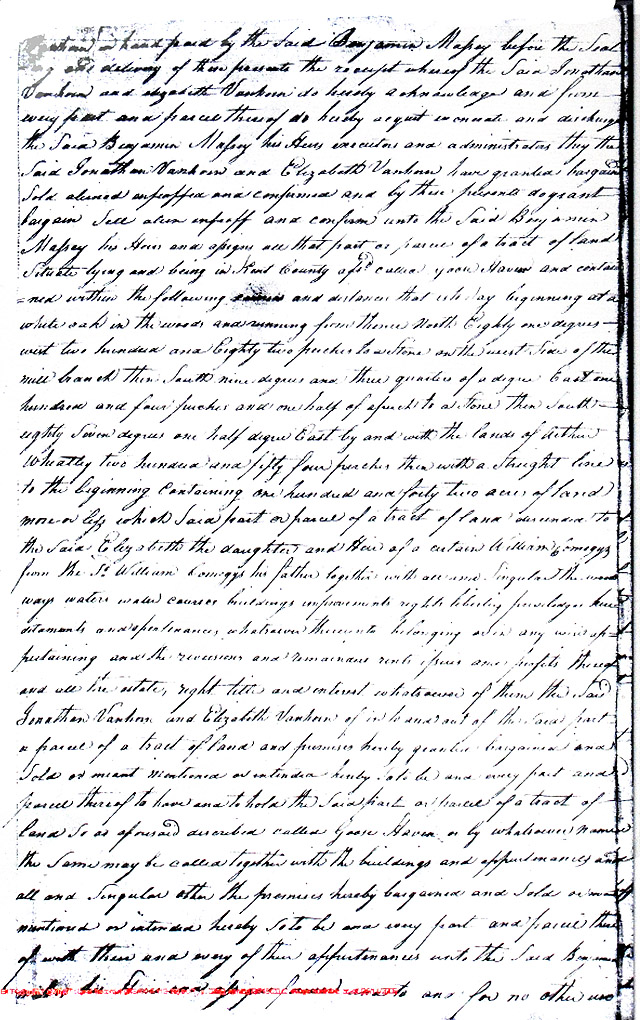 in hand paid by the Said Benjamin Massey before the Seal
and delivery of these presents the receipt whereof the Said Jonathan
Vanhorn and elizabeth Vanhorn do hereby acknowledge and from
every part and parcel thereof do hereby acquit exonerate and discharge
the Said Benjamin Massey his Heirs executors and administrators they the
Said Jonathan Vanhorn and Elizabeth Vanhorn have granted bargain
Sold aliened enfeoffed and confirmed and by these presents do grant
bargain Sell alien enfeoff and confirm unto the Said Benjamin
Massey his Heirs and assigns all that part or parcel of a tract of land
Situate lying and being in Kent County afsd. called Goose Haven and contai
=ned within the following and distances that is to Say beginning at a
white oak in the woods and running from thence North Eighty one degrees
west two hundred and Eighty two perches to a Stone on the west Side of the
mill branch then South nine degrees and three quarters of a degree East one
hundred and four perches and one half of a perch to a Stone then South
eighty Seven degrees one half degree East by and with the lands of Arthur
Wheatley two hundred and fifty four perches then with a Straight line
to the beginning Containing one hundred and forty two acres of land
more or less which Said part or parcel of a tract of land descended to
the Said Elizabeth the daughter and Heir of a certain William Comegys
from the Sd. William Comegys his father together with all and Singular the
ways waters water courses buildings improvements rights liberties priviledges here
ditaments and apertenances whatsoever thereunto belonging or in any wise ap
pertaining and the reversions and remainders rents issues and profits thereof
and all the estate, right title and interest whatsoever of them the Said
Jonathan Vanhorn and Elizabeth Vanhorn of in to and out of the Said part
a parcel of a tract of land and premises hereby granted bargained and
Sold or meant mentioned or intended hereby So to be and every part and
parcel thereof to have and to hold the Said part or parcel of a tract of
land So as aforesaid described called Goose Haven or by whatsoever name
the Same may be called together with the buildings and appurtenances and
all and Singular other the premises hereby bargained and Sold or
mentioned or intended hereby So to be and every part and parcel there
of with their and every of their appurtenances unto the Said Benjamin
his Heirs and assigns forever to and for no other use